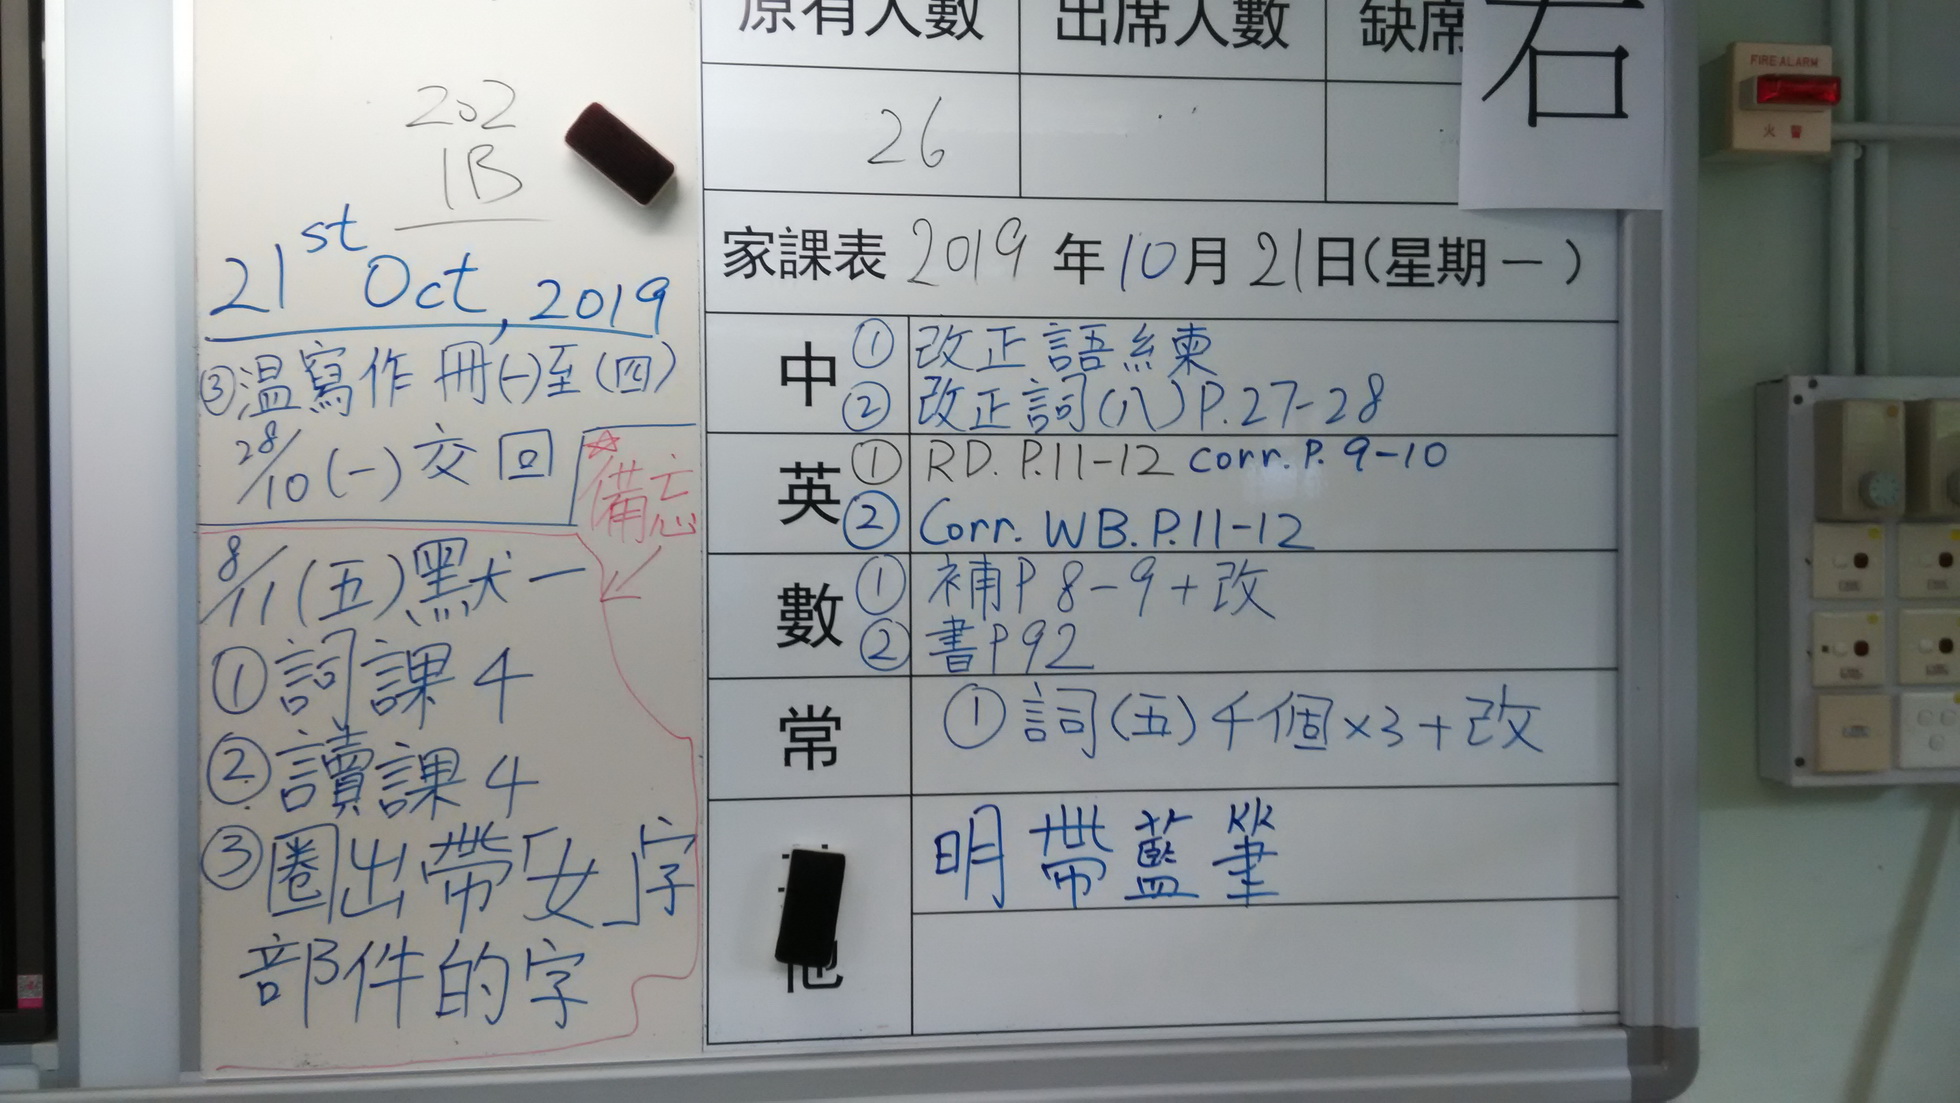 202
1B
21st Oct, 2019
③溫寫作冊(一)至(四)
28/10(一)交回
☆備忘
8/11(五)默一
①詞課4
②讀課4
③圈出帶「女」字
部件的字
原有人數 出席人數 缺席
右
26
家課表 2019年10月21日(星期一)
中 ①改正語練
②改正詞(八)P.27-28
英 ①RD. P.11-12 corr. P. 9-10
②Corr. WB. P.11-12
數 ①補P 8-9+改
②書P92
常 ①詞(五)千個×3+改
他
明帶藍筆
FIRE ALARM
火警